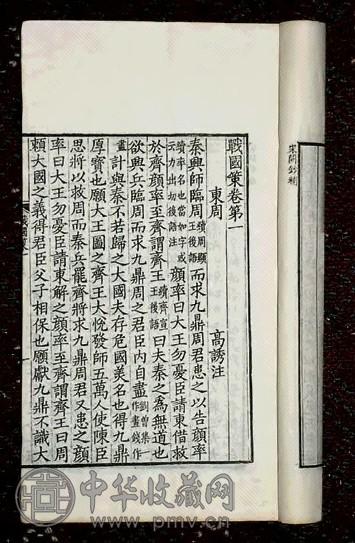 戰國策卷第一
東周　高誘注
秦興師臨周續周顯王後語而求九鼎周君患之以告顔率
續率名也當如字或云力出切後語注顔率曰大王勿憂臣請東借救
於齊顔率至齊謂齊王續齊宣王後語曰夫秦之為無道也
欲興兵臨周而求九鼎周之君臣內自盡劉曾集一作畫錢作
畫計與秦不若歸之大國夫存危國美名也得九鼎
厚寳也願大王圖之齊王大悅發師五萬人使陳臣
思將以救周而秦兵罷齊將求九鼎周君又患之顔
率曰大王勿憂臣請東解之顔率至齊謂齊王曰周
賴大國之義得君臣父子相保也願獻九鼎不識大
中华收藏网
www.pmv.cn